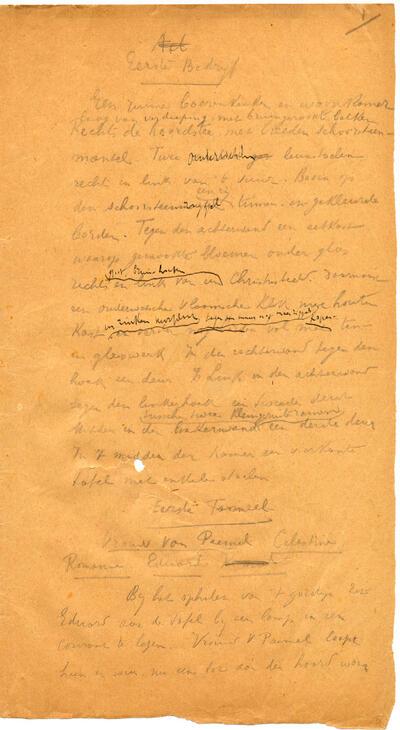 Eerste Bedrijf
Een ruime boerenkeuken en woonkamer
laag van verdieping met bruingerookte balken
Rechts de haardstee, met breeden schoorsteen-
mantel. Twee ouderwetsche leunstoelen
rechts en links van 't vuur. Boven op
den schoorsteenmantel tinnen en gekleurde
borden. Tegen den achterwand een eetkast
waarop gemaakte bloemen onder glas
rechts en links van een Christusbeeld. Daarnaast
een ouderwetsche Vlaamsche klok
kast vol met tin-
en glaswerk. In den rechterwand tegen den
hoek een deur. Links in den achterwand
tegen den linkerhoek een tweede deur
Midden in den linkerwand een derde deur
In 't midden der kamer een vierkante
tafel met enkele stoelen
Eerste Tooneel
Vrouw Van Paemel Celestine
Romanie Eduard
Bij het ophalen van 't gordijn zit
Eduard aan de tafel bij een lamp in een
courant te lezen. Vrouw V Paemel loopt
heen en weer, nu en toe aan den haard